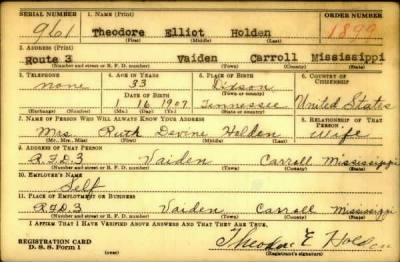 SERIAL NUMBER 1. NAME (Print) ORDER NUMBER
961 Theodore Elliot Holden 1899
(First) (Middle) (Last)
2. ADDRESS (Print)
Route 3 Vaiden Carroll Mississippi
(Number and street or R. F. D. number) (Town) (County) (State)
3. TELEPHONE 4. AGE IN YEARS 5. PLACE OF BIRTH 6. COUNTRY OF CITIZENSHIP
none 33 Dixson
DATE OF BIRTH (Town or county)
1 16 1907 Tennessee United States
(Exchange) (Number) (Mo.) (Day) (Yr.) (State or country)
7. NAME OF PERSON WHO WILL ALWAYS KNOW YOUR ADDRESS 8. RELATIONSHIP OF THAT PERSON
Mrs Ruth Devine Holden Wife
(Mr., Mrs., Miss) (First) (Middle) (Last)
9. ADDRESS OF THAT PERSON
R.F.D.3 Vaiden Carroll Mississippi
(Number and street or R. F. D. number) (Town) (County) (State)
10. EMPLOYER'S NAME
Self
11. PLACE OF EMPLOYMENT OR BUSINESS
R.F.D.3 Vaiden Carroll Mississippi
(Number and street or R. F. D. number) (Town) (County) (State)
I AFFIRM THAT I HAVE VERIFIED ABOVE ANSWERS AND THAT THEY ARE TRUE.
REGISTRATION CARD Theodore E Holden
D. S. S. Form 1 (over) (Registrant's signature)